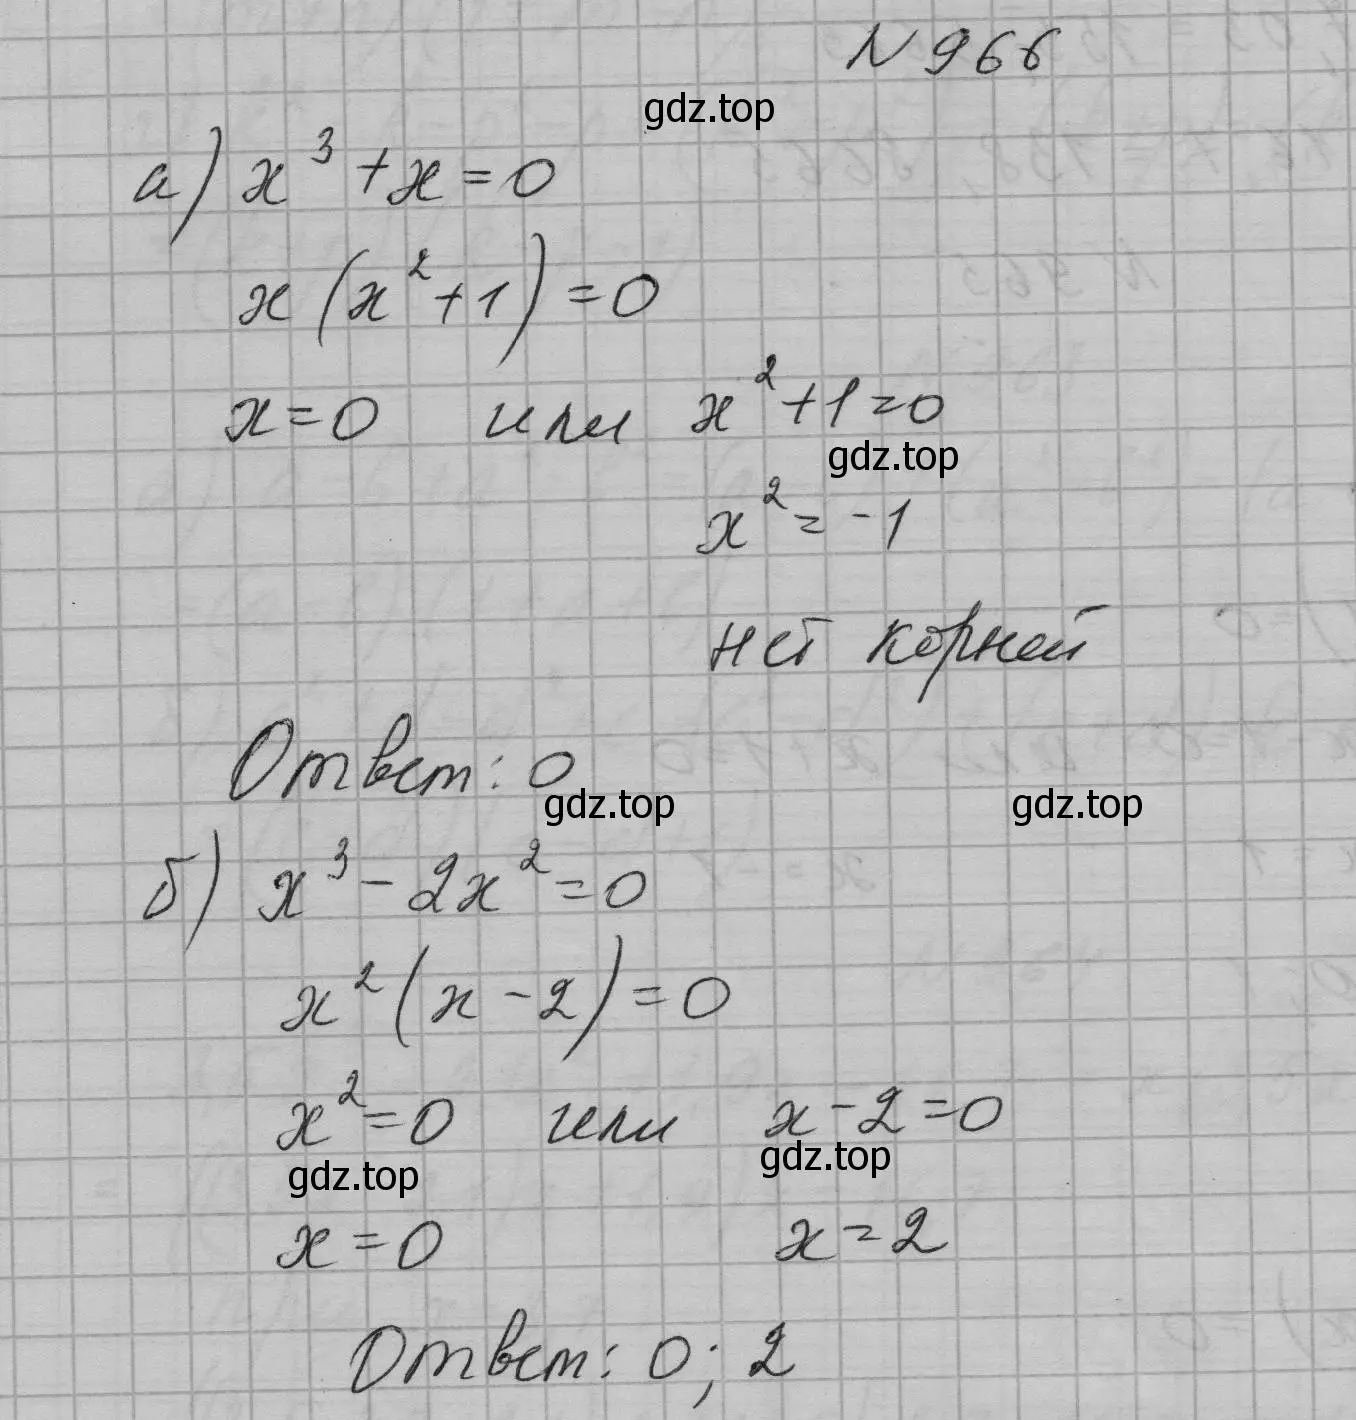 N 966
gdz.top
а) x³ + x = 0
x (x² + 1) = 0
x = 0 или x² + 1 = 0
gdz.top
x² = -1
нет корней
Ответ: 0
gdz.top gdz.top
б) x³ - 2x² = 0
x² (x - 2) = 0
x² = 0 или x - 2 = 0
gdz.top gdz.top
x = 0 x = 2
Ответ: 0; 2